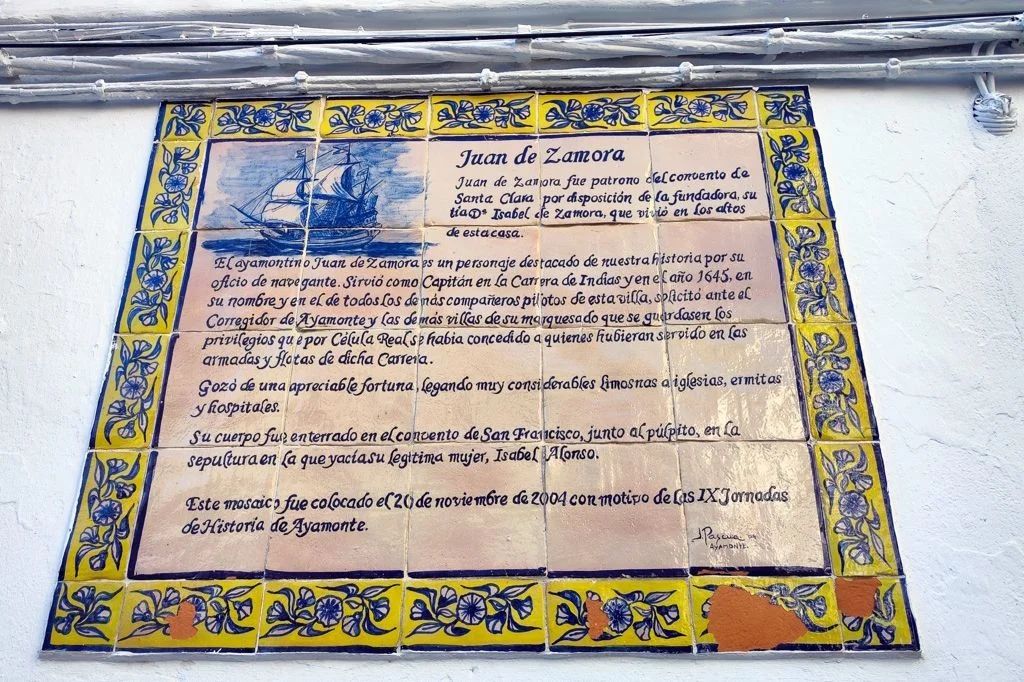 Juan de Zamora
Juan de Zamora fue patrono del convento de
Santa Clara por disposición de la fundadora, su
tía Dª Isabel de Zamora, que vivió en los altos
de esta casa.
El ayamontino Juan de Zamora es un personaje destacado de nuestra historia por su
oficio de navegante. Sirvió como Capitán en la Carrera de Indias y en el año 1645, en
su nombre y en el de todos los demás compañeros pilotos de esta villa, solicitó ante el
Corregidor de Ayamonte y las demás villas de su marquesado que se guardasen los
privilegios que por Célula Real se habia concedido a quienes hubieran servido en las
armadas y flotas de dicha Carrera.
Gozó de una apreciable fortuna, legando muy considerables limosnas a iglesias, ermitas
y hospitales.
Su cuerpo fue enterrado en el convento de San Francisco, junto al púlpito, en la
sepultura en la que yacía su legítima mujer, Isabel Alonso.
Este mosaico fue colocado el 20 de noviembre de 2004 con motivo de las IX Jornadas
de Historia de Ayamonte.
J. Pascua
AYAMONTE.